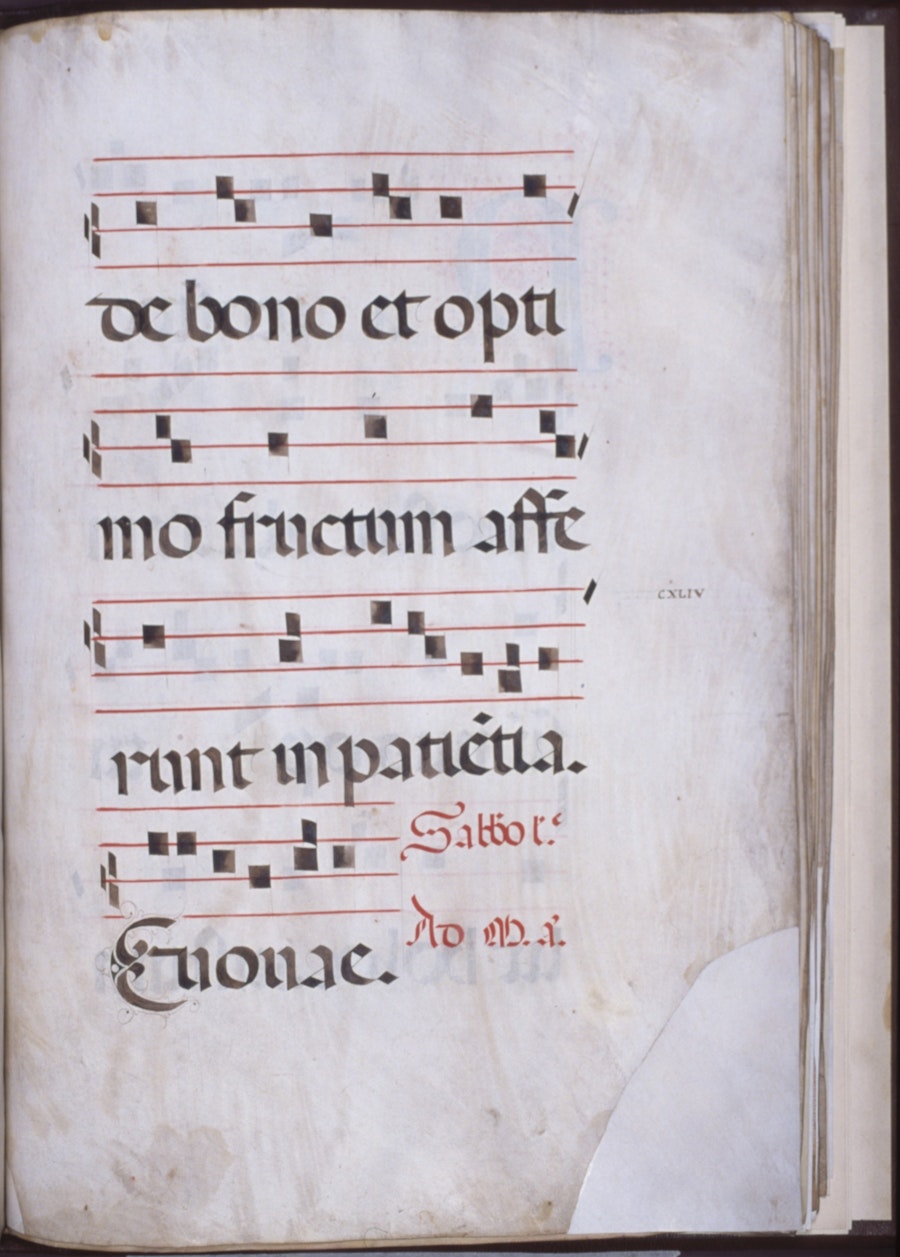 de bono et opti
mo fructum affe
CXLIV
runt in patiẽtia.
Sabbo
Euouae.
Ad M. a.